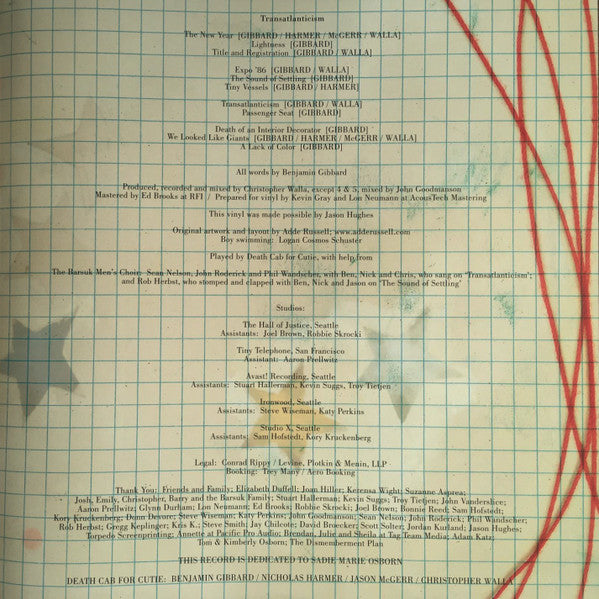 Transatlanticism
The New Year [GIBBARD / HARMER / McGERR / WALLA]
Lightness [GIBBARD]
Title and Registration [GIBBARD / WALLA]
Expo '86 [GIBBARD / WALLA]
The Sound of Settling [GIBBARD]
Tiny Vessels [GIBBARD / HARMER]
Transatlanticism [GIBBARD / WALLA]
Passenger Seat [GIBBARD]
Death of an Interior Decorator [GIBBARD]
We Looked Like Giants [GIBBARD / HARMER / McGERR / WALLA]
A Lack of Color [GIBBARD]
All words by Benjamin Gibbard
Produced, recorded and mixed by Christopher Walla, except 4 & 5, mixed by John Goodmanson
Mastered by Ed Brooks at RFI / Prepared for vinyl by Kevin Gray and Lon Neumann at AcousTech Mastering
This vinyl was made possible by Jason Hughes
Original artwork and layout by Adde Russell; www.adderussell.com
Boy swimming: Logan Cosmos Schuster
Played by Death Cab for Cutie, with help from
The Barsuk Men's Choir: Sean Nelson, John Roderick and Phil Wandscher, with Ben, Nick and Chris, who sang on 'Transatlanticism';
and Rob Herbst, who stomped and clapped with Ben, Nick and Jason on 'The Sound of Settling'
Studios:
The Hall of Justice, Seattle
Assistants: Joel Brown, Robbie Skrocki
Tiny Telephone, San Francisco
Assistant: Aaron Prellwitz
Avast! Recording, Seattle
Assistants: Stuart Hallerman, Kevin Suggs, Troy Tietjen
Ironwood, Seattle
Assistants: Steve Wiseman, Katy Perkins
Studio X, Seattle
Assistants: Sam Hofstedt, Kory Kruckenberg
Legal: Conrad Rippy / Levine, Plotkin & Menin, LLP
Booking: Trey Many / Aero Booking
Thank You: Friends and Family; Elizabeth Duffell; Joan Hiller; Kerensa Wight; Suzanne Asprea;
Josh, Emily, Christopher, Barry and the Barsuk Family; Stuart Hallerman; Kevin Suggs; Troy Tietjen; John Vanderslice;
Aaron Prellwitz; Glynn Durham; Lon Neumann; Ed Brooks; Robbie Skrocki; Joel Brown; Bonnie Reed; Sam Hofstedt;
Kory Kruckenberg; Dunn Devore; Steve Wiseman; Katy Perkins; John Goodmanson; Sean Nelson; John Roderick; Phil Wandscher;
Rob Herbst; Gregg Keplinger; Kris K.; Steve Smith; Jay Chilcote; David Bruecker; Scott Solter; Jordan Kurland; Jason Hughes;
Torpedo Screenprinting; Annette at Pacific Pro Audio; Brendan, Julie and Sheila at Tag Team Media; Adam Katz;
Tom & Kimberly Osborn; The Dismemberment Plan
THIS RECORD IS DEDICATED TO SADIE MARIE OSBORN
DEATH CAB FOR CUTIE: BENJAMIN GIBBARD / NICHOLAS HARMER / JASON McGERR / CHRISTOPHER WALLA